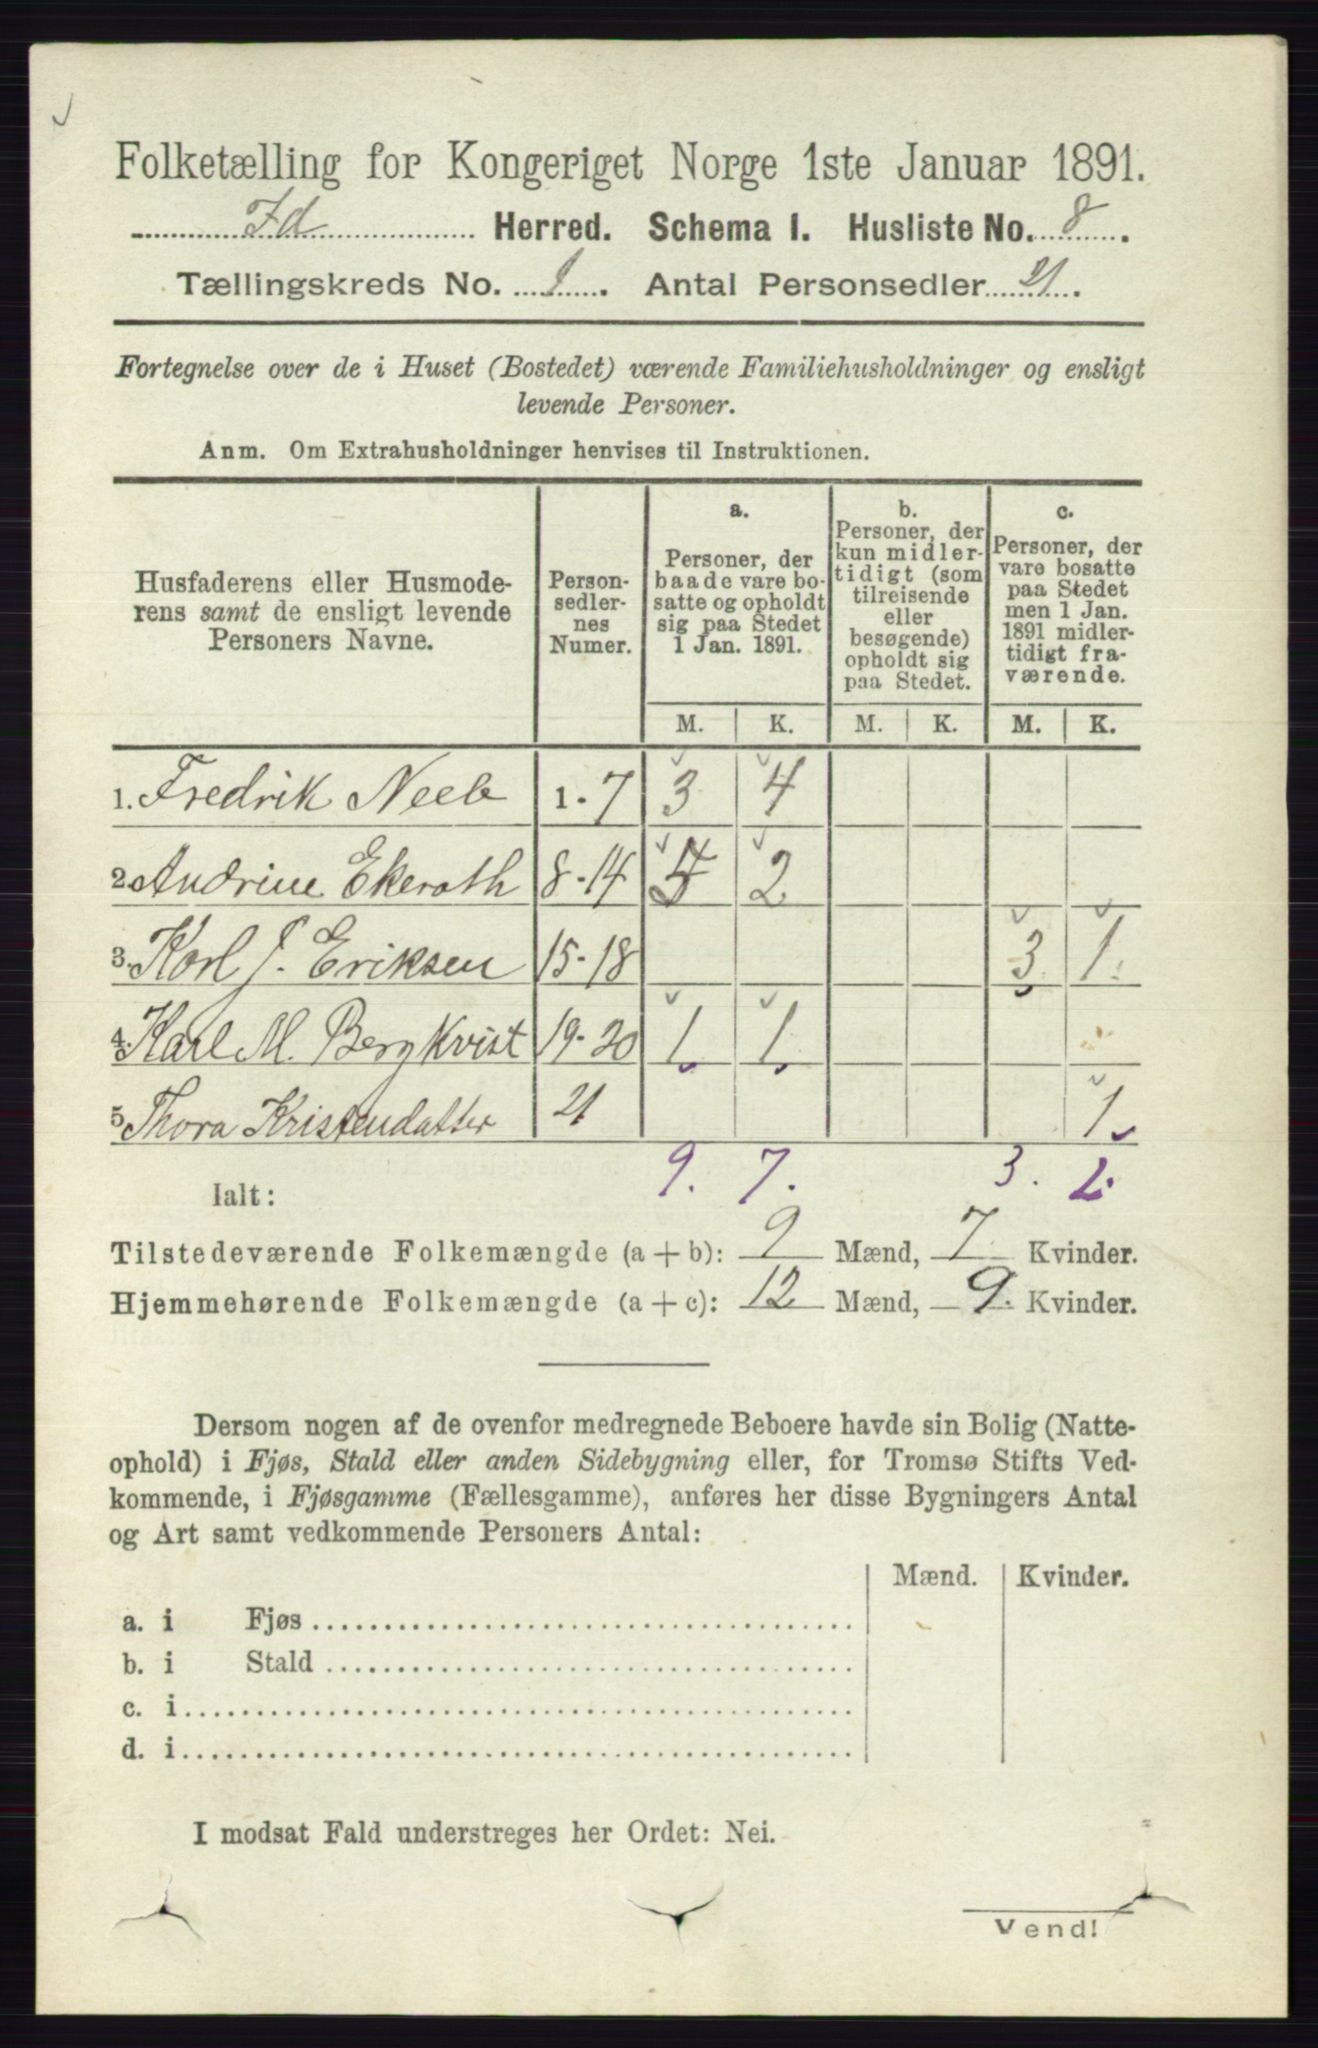 Folketælling for Kongeriget Norge 1ste Januar 1891.
Id Herred. Schema I. Husliste No. 8.
Tællingskreds No. 1. Antal Personsedler 21.
Fortegnelse over de i Huset (Bostedet) værende Familiehusholdninger og ensligt
levende Personer.
Anm. Om Extrahusholdninger henvises til Instruktionen.
Husfaderens eller Husmode-
rens samt de ensligt levende
Personers Navne.
Person-
sedler-
nes
Numer.
a.
Personer, der
baade vare bo-
satte og opholdt
sig paa Stedet
1 Jan. 1891.
b.
Personer, der
kun midler-
tidigt (som
tilreisende
eller
besøgende)
opholdt sig
paa Stedet.
c.
Personer, der
vare bosatte
paa Stedet
men 1 Jan.
1891 midler-
tidigt fra-
værende.
M. K. M. K. M. K.
1. Fredrik Neeb 1-7 3 4
2. Andrine Ekeroth 8-14 5 2
3. Karl J. Eriksen 15-18 3 1
4. Karl M. Bergkvist 19-20 1 1
5 Thora Kristendatter 21 1
Ialt: 9. 7. 3. 2.
Tilstedeværende Folkemængde (a + b): 9 Mænd, 7 Kvinder.
Hjemmehørende Folkemængde (a + c): 12 Mænd, 9. Kvinder.
Dersom nogen af de ovenfor medregnede Beboere havde sin Bolig (Natte-
ophold) i Fjøs, Stald eller anden Sidebygning eller, for Tromsø Stifts Ved-
kommende, i Fjøsgamme (Fællesgamme), anføres her disse Bygningers Antal
og Art samt vedkommende Personers Antal:
Mænd. Kvinder.
a. i Fjøs
b. i Stald
c. i
d. i
I modsat Fald understreges her Ordet: Nei.
Vend!